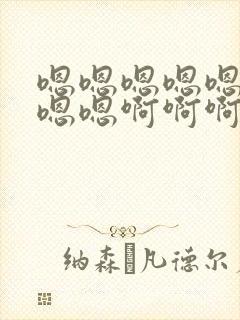 嗯嗯嗯嗯嗯
嗯嗯啊啊啊
纳森 凡德尔